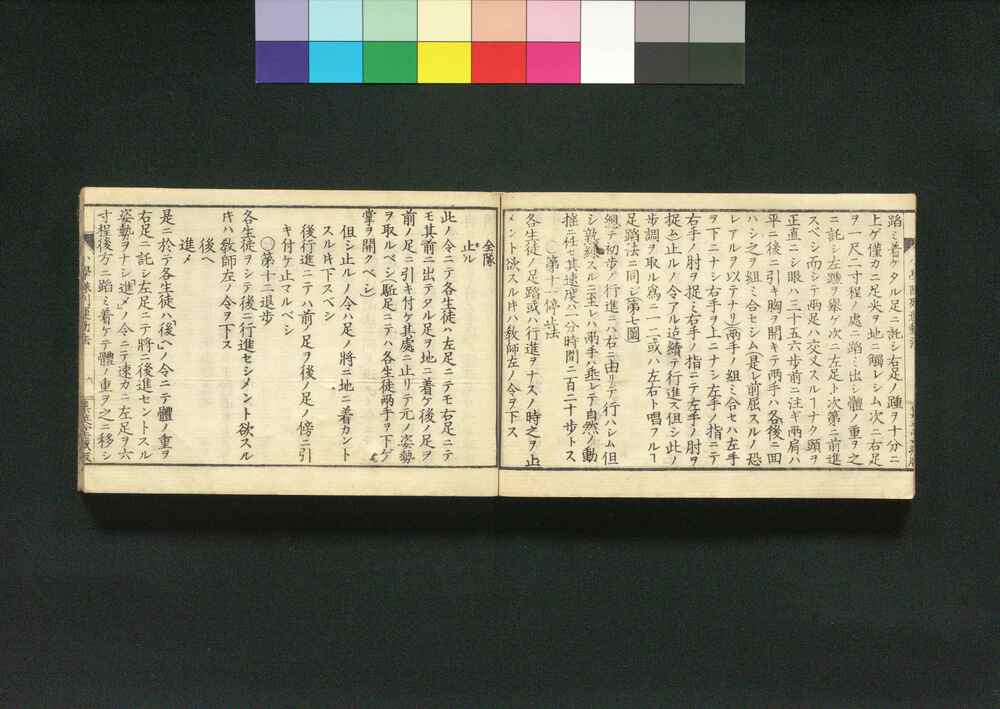 踏ミ着ケタル足ニ託シ右足ノ踵ヲ十分ニ
上ゲ僅カニ足尖ヲ地ニ觸レシム次ニ右足
ヲ一尺二寸程ノ處ニ踏ミ出シ體ノ重ヲ之
ニ託シ左踵ヲ擧ケ次ニ左足ト次第ニ前進
スベシ而シテ兩足ハ交叉スルヿナク頭ヲ
正直ニシ眼ハ三十五六歩前ニ注ギ兩肩ハ
平ニ後ニ引キ胸ヲ開キテ兩手ハ各後ニ回
ハシ之ヲ組ミ合セシム(是レ前屈スルノ恐
レアルヲ以テナリ)兩手ノ組ミ合セハ左手
ヲ下ニナシ右手ヲ上ニナシ左手ノ指ニテ
右手ノ肘ヲ捉ミ右手ノ指ニテ左手ノ肘ヲ
捉ム止ルノ令アル迠續テ行進ス但シ此ノ
歩調ヲ取ル爲一二或ハ左右ト唱フルヿ
足踏法ニ同シ(第七圖)
總テ初歩ノ行進ニハ右ニ由リテ行ハシム但
シ敦練スルニ至レハ兩手ハ垂レテ自然ノ動
揺ニ任セ其速度ハ一分時間ニ百二十歩トス
〇第十一停止法
各生徒ノ足踏或ハ行進ヲナスノ時之ヲ止
メント欲スルキハ敎師左ノ令ヲ下ス
全隊
止ル
此ノ令ニテ各生徒ハ左足ニテモ右足ニテ
モ其前ニ出テタル足ヲ地ニ着ケ後ノ足ヲ
前ノ足ニ引キ付ケ其處ニ止リテ元ノ姿勢
ヲ取ルベシ(駈足ニテハ各生徒兩手ヲ下ゲ
掌ヲ開クベシ)
但シ止ルノ令ハ足ノ將ニ地ニ着カント
スルキ下スベシ
後行進ニテハ前ノ足ヲ後ノ足ノ傍ニ引
キ付ケ止マルベシ
〇第十二退歩
各生徒ヲシテ後ニ行進セシメント欲スル
キハ敎師左ノ令ヲ下ス
後ヘ
進メ
是ニ於テ各生徒ハ後ヘノ令ニテ體ノ重ヲ
右足ニ託シ左足ニテ將ニ後進セントスル
姿勢ヲナシ進メノ令ニテ速カニ左足ヲ六
寸程後方ニ踏ミ着ケテ體ノ重ヲ之ニ移シ